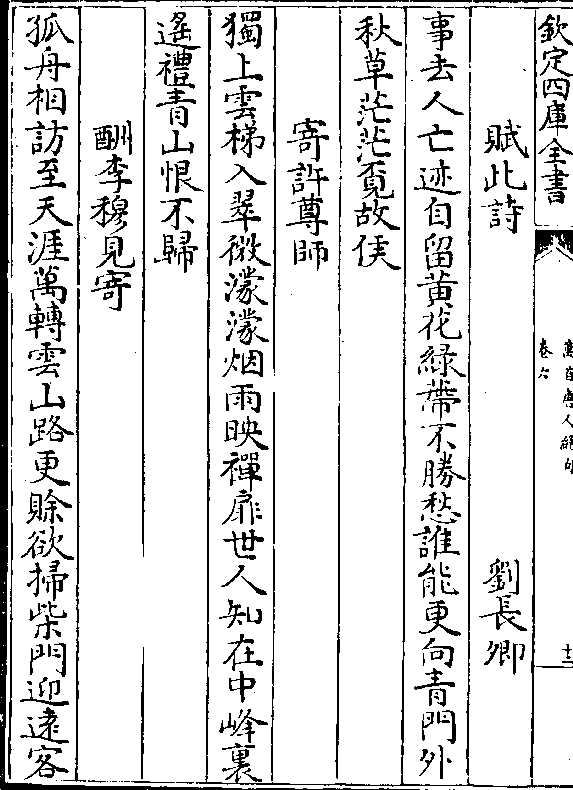 欽定四庫全書
萬首唐人絕句
卷六
十三
賦此詩 劉長卿
事去人亡迹自留黃花緑蔕不勝愁誰能更向青門外
秋草茫茫覓故侯
寄許尊師
獨上雲梯入翠微濛濛烟雨映禪扉世人知在中峰裏
遙禮青山恨不歸
酬李穆見寄
孤舟相訪至天涯萬轉雲山路更賒欲掃柴門迎遠客